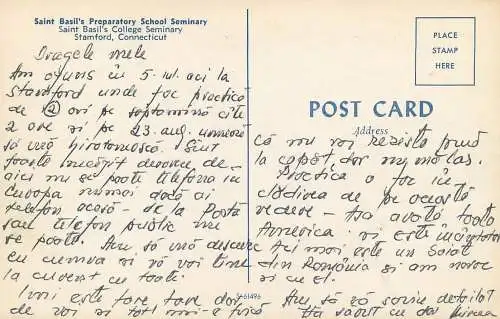 Saint Basil's Preparatory School Seminary
Saint Basil's College Seminary
Stamford, Connecticut
PLACE
STAMP
HERE
POST CARD
Address
Dragele mele
Am ajuns în 5 iul. aci la
Stamford unde fac practică
de 2 ori pe săptămînă cîte
2 ore și pe 23 aug. urmează
să mă hirotonească. Sunt
foarte necăjit deoarece de-
aici nu se poate telefona în
Europa numai dacă ai
telefon acasă - de la Poștă
sau telefon public nu
se poate. Am să mă descurc
cu cumva și să vă țin
la curent cu toate.
Îmi este tare tare dor
de voi și tot mi-e frică
că nu voi rezista pînă
la capăt dar nu mă las.
Practica o fac în
clădirea de pe această
vedere - ca avate toate
America. și este încîntător
Aci mai este un băiat
din România și am noroc
și cu el.
Am să vă scriu detaliat
Vă sărut cu dor Mircea
S-61496